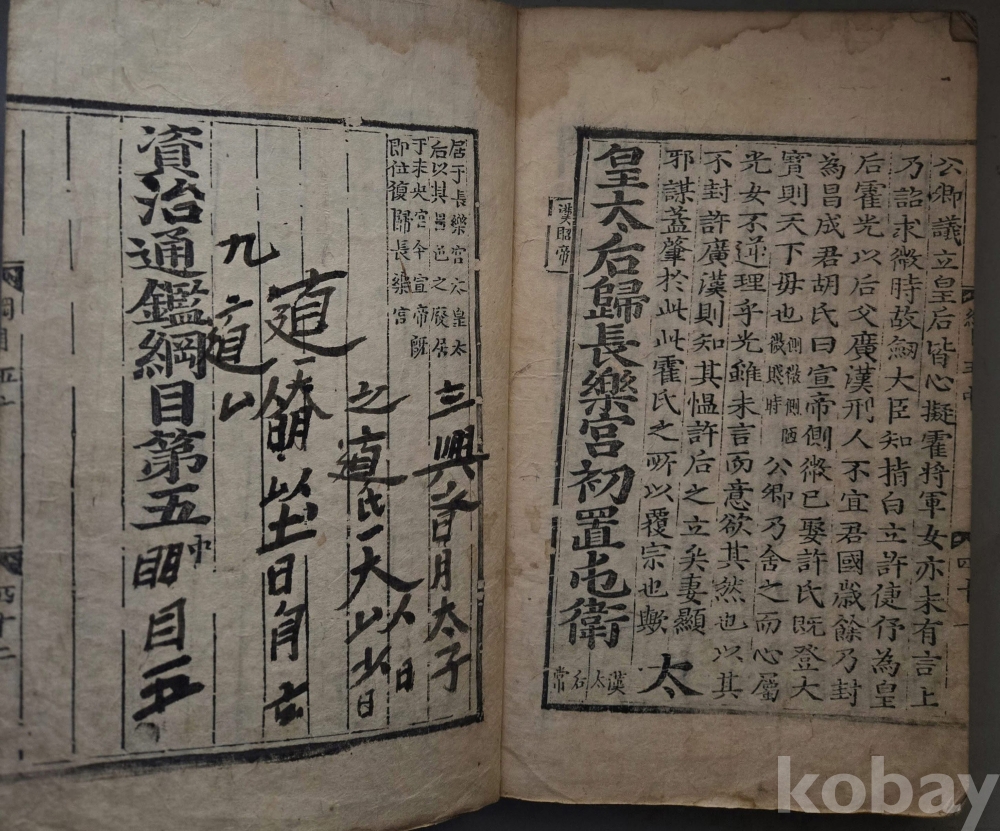 公卿議立皇后皆心擬霍將軍女亦未有言上
乃詔求微時故劒大臣知指白立許倢伃為皇
后霍光以后父廣漢刑人不宜君國歲餘乃封
為昌成君胡氏曰宣帝側微已娶許氏既登大
寶則天下毋也側微側陋微賤時公卿乃舍之而心屬
光女不逆理乎光雖未言而意欲其然也以其
不封許廣漢則知其慍許后之立矣妻顯
邪謀蓋肇於此此霍氏之所以覆宗也歟
太
皇太后歸長樂宮初置屯衛
漢太后常
漢昭帝
居于長樂宮
太皇太
后以其
之廢居
于未央宮今宣帝既
即位復歸長樂宮
三興
日月太子
之道氏一大以
日
道一
以土日月
九
道
資治通鑑綱目第五中
目
四十二
kobay